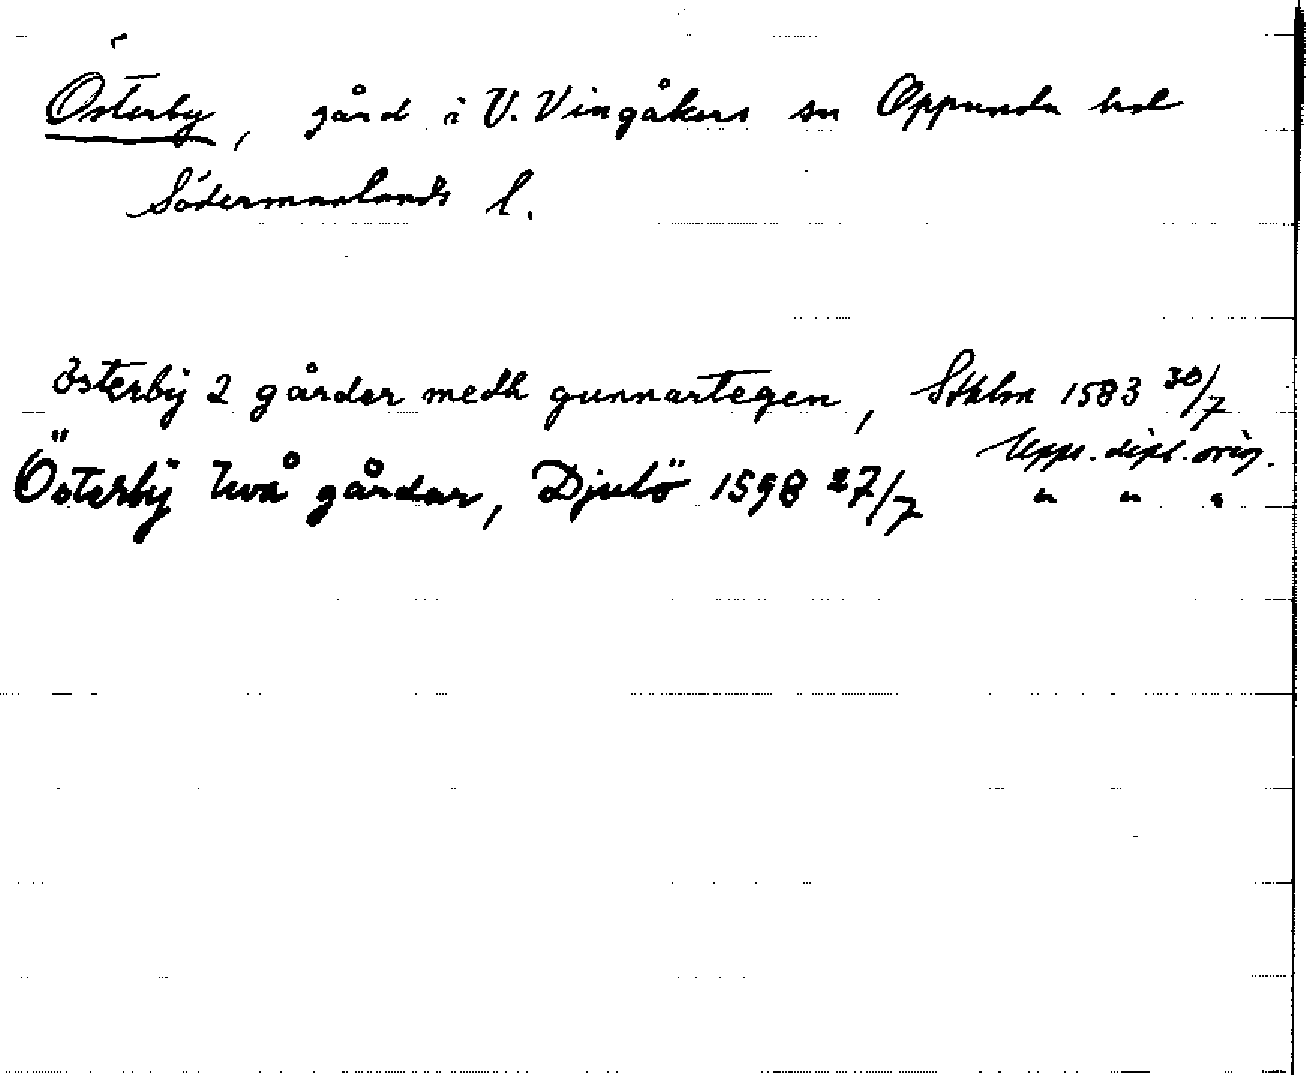 Österby, gård i V. Vingåkers sn Oppunda hd
Södermanlands l.
österbÿ 2 gårdar medh gunnartegen, Sthlm 1583 30/7
Upps. dipl. orig.
Österbÿ två gårdar, Djulö 1598 27/7 " " "